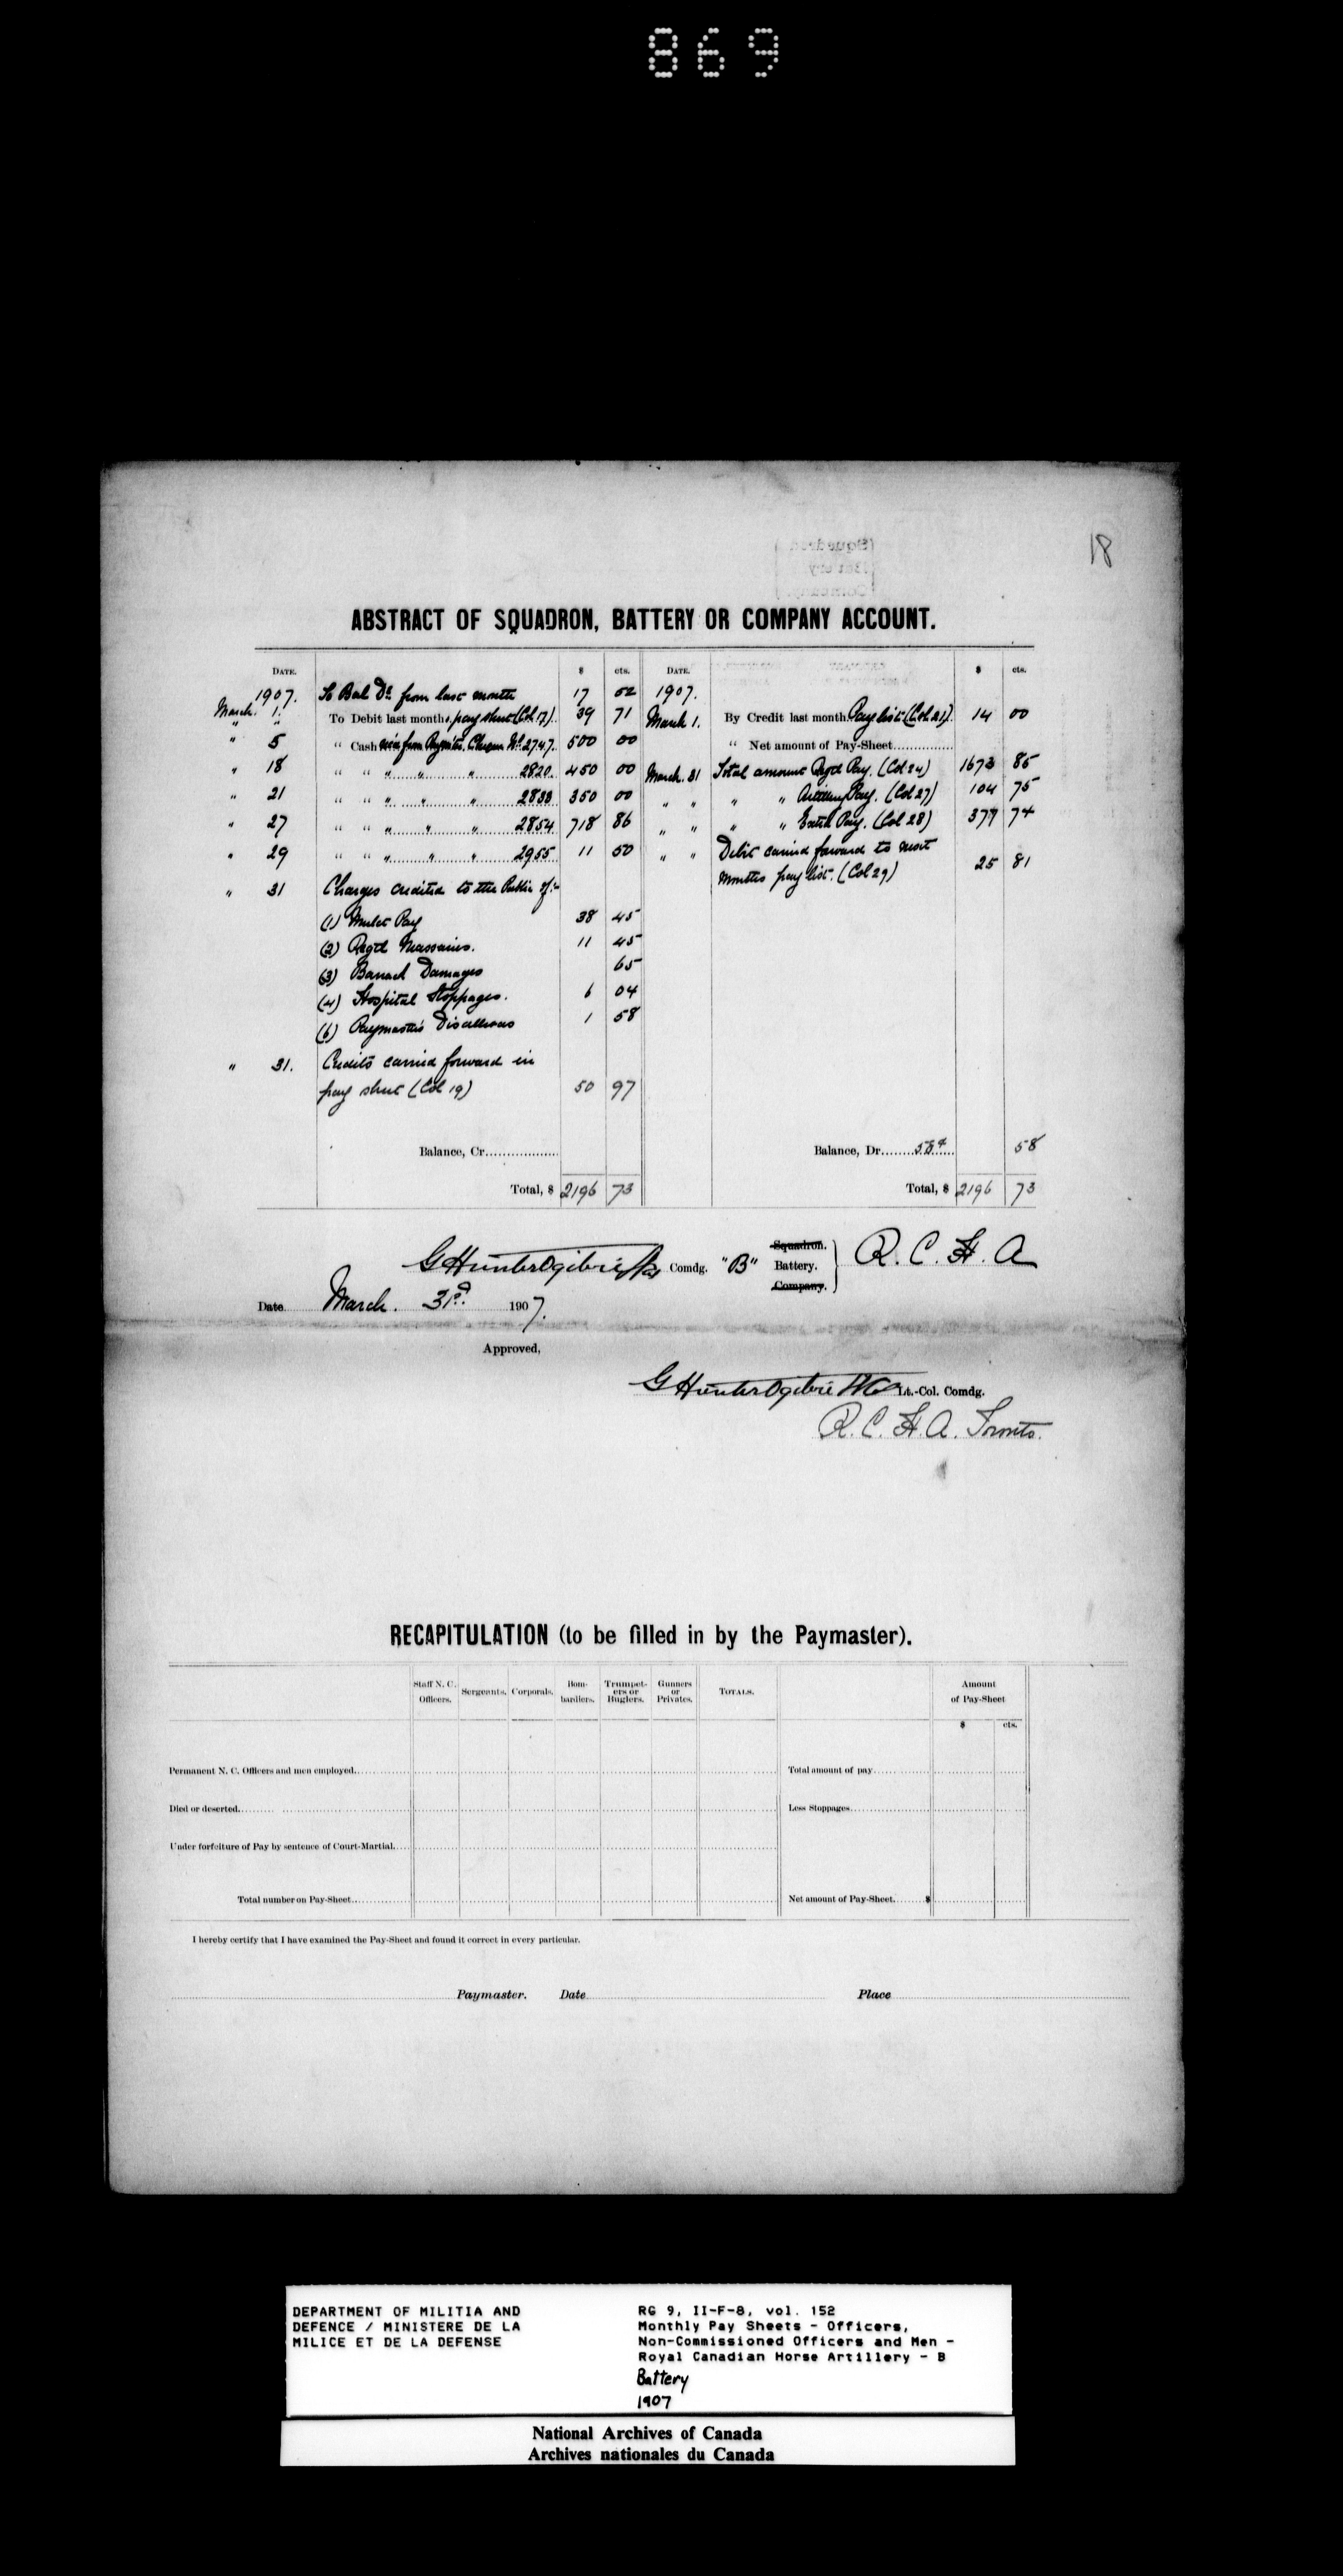 869
18
ABSTRACT OF SQUADRON, BATTERY OR COMPANY ACCOUNT.
DATE. $ cts. DATE. $ cts.
1907. To Bal Dr from last month 17 52 1907.
March 1. To Debit last months pay sheet (Col 17). 39 71 March 1. By Credit last month Pay list (Col 21). 14 00
" 5 " Cash from Paymaster, Cheque No 2747. 500 00 " Net amount of Pay-Sheet
" 18 " " " " " 2820. 450 00 March 31 Total amount Regtl Pay. (Col 24) 1673 85
" 21 " " " " " 2838 350 00 " " " " Artillery Pay. (Col 27) 104 75
" 27 " " " " " 2854 718 86 " " " " Extra Pay. (Col 28) 377 74
" 29 " " " " " 2955 11 50 " " Debit carried forward to next
months pay list. (Col 29) 25 81
" 31 Charges credited to the Public of:-
(1) Mulct Pay 38 45
(2) Regtl Necessaries. 11 45
(3) Barrack Damages 65
(4) Hospital Stoppages. 6 04
(6) Paymaster's Disallows 1 58
" 31. Credits carried forward in
pay sheet (Col 19) 50 97
Balance, Cr. Balance, Dr. 58¢ 58
Total, $ 2196 73 Total, $ 2196 73
G Hunter Ogilvie Comdg. "B" Squadron. Battery. Company. R. C. H. A
Date March. 31st. 1907.
Approved,
G Hunter Ogilvie Lt.-Col. Comdg.
R. C. H. A. Toronto.
RECAPITULATION (to be filled in by the Paymaster).
Staff N. C. Officers. Sergeants. Corporals. Bombardiers. Trumpeters or Buglers. Gunners or Privates. TOTALS. Amount of Pay-Sheet
$ cts.
Permanent N. C. Officers and men employed. Total amount of pay
Died or deserted. Less Stoppages
Under forfeiture of Pay by sentence of Court-Martial.
Total number on Pay-Sheet. Net amount of Pay-Sheet. $
I hereby certify that I have examined the Pay-Sheet and found it correct in every particular.
Paymaster. Date Place
DEPARTMENT OF MILITIA AND
DEFENCE / MINISTERE DE LA
MILICE ET DE LA DEFENSE
RG 9, II-F-8, vol. 152
Monthly Pay Sheets - Officers,
Non-Commissioned Officers and Men -
Royal Canadian Horse Artillery - B
Battery
1907
National Archives of Canada
Archives nationales du Canada